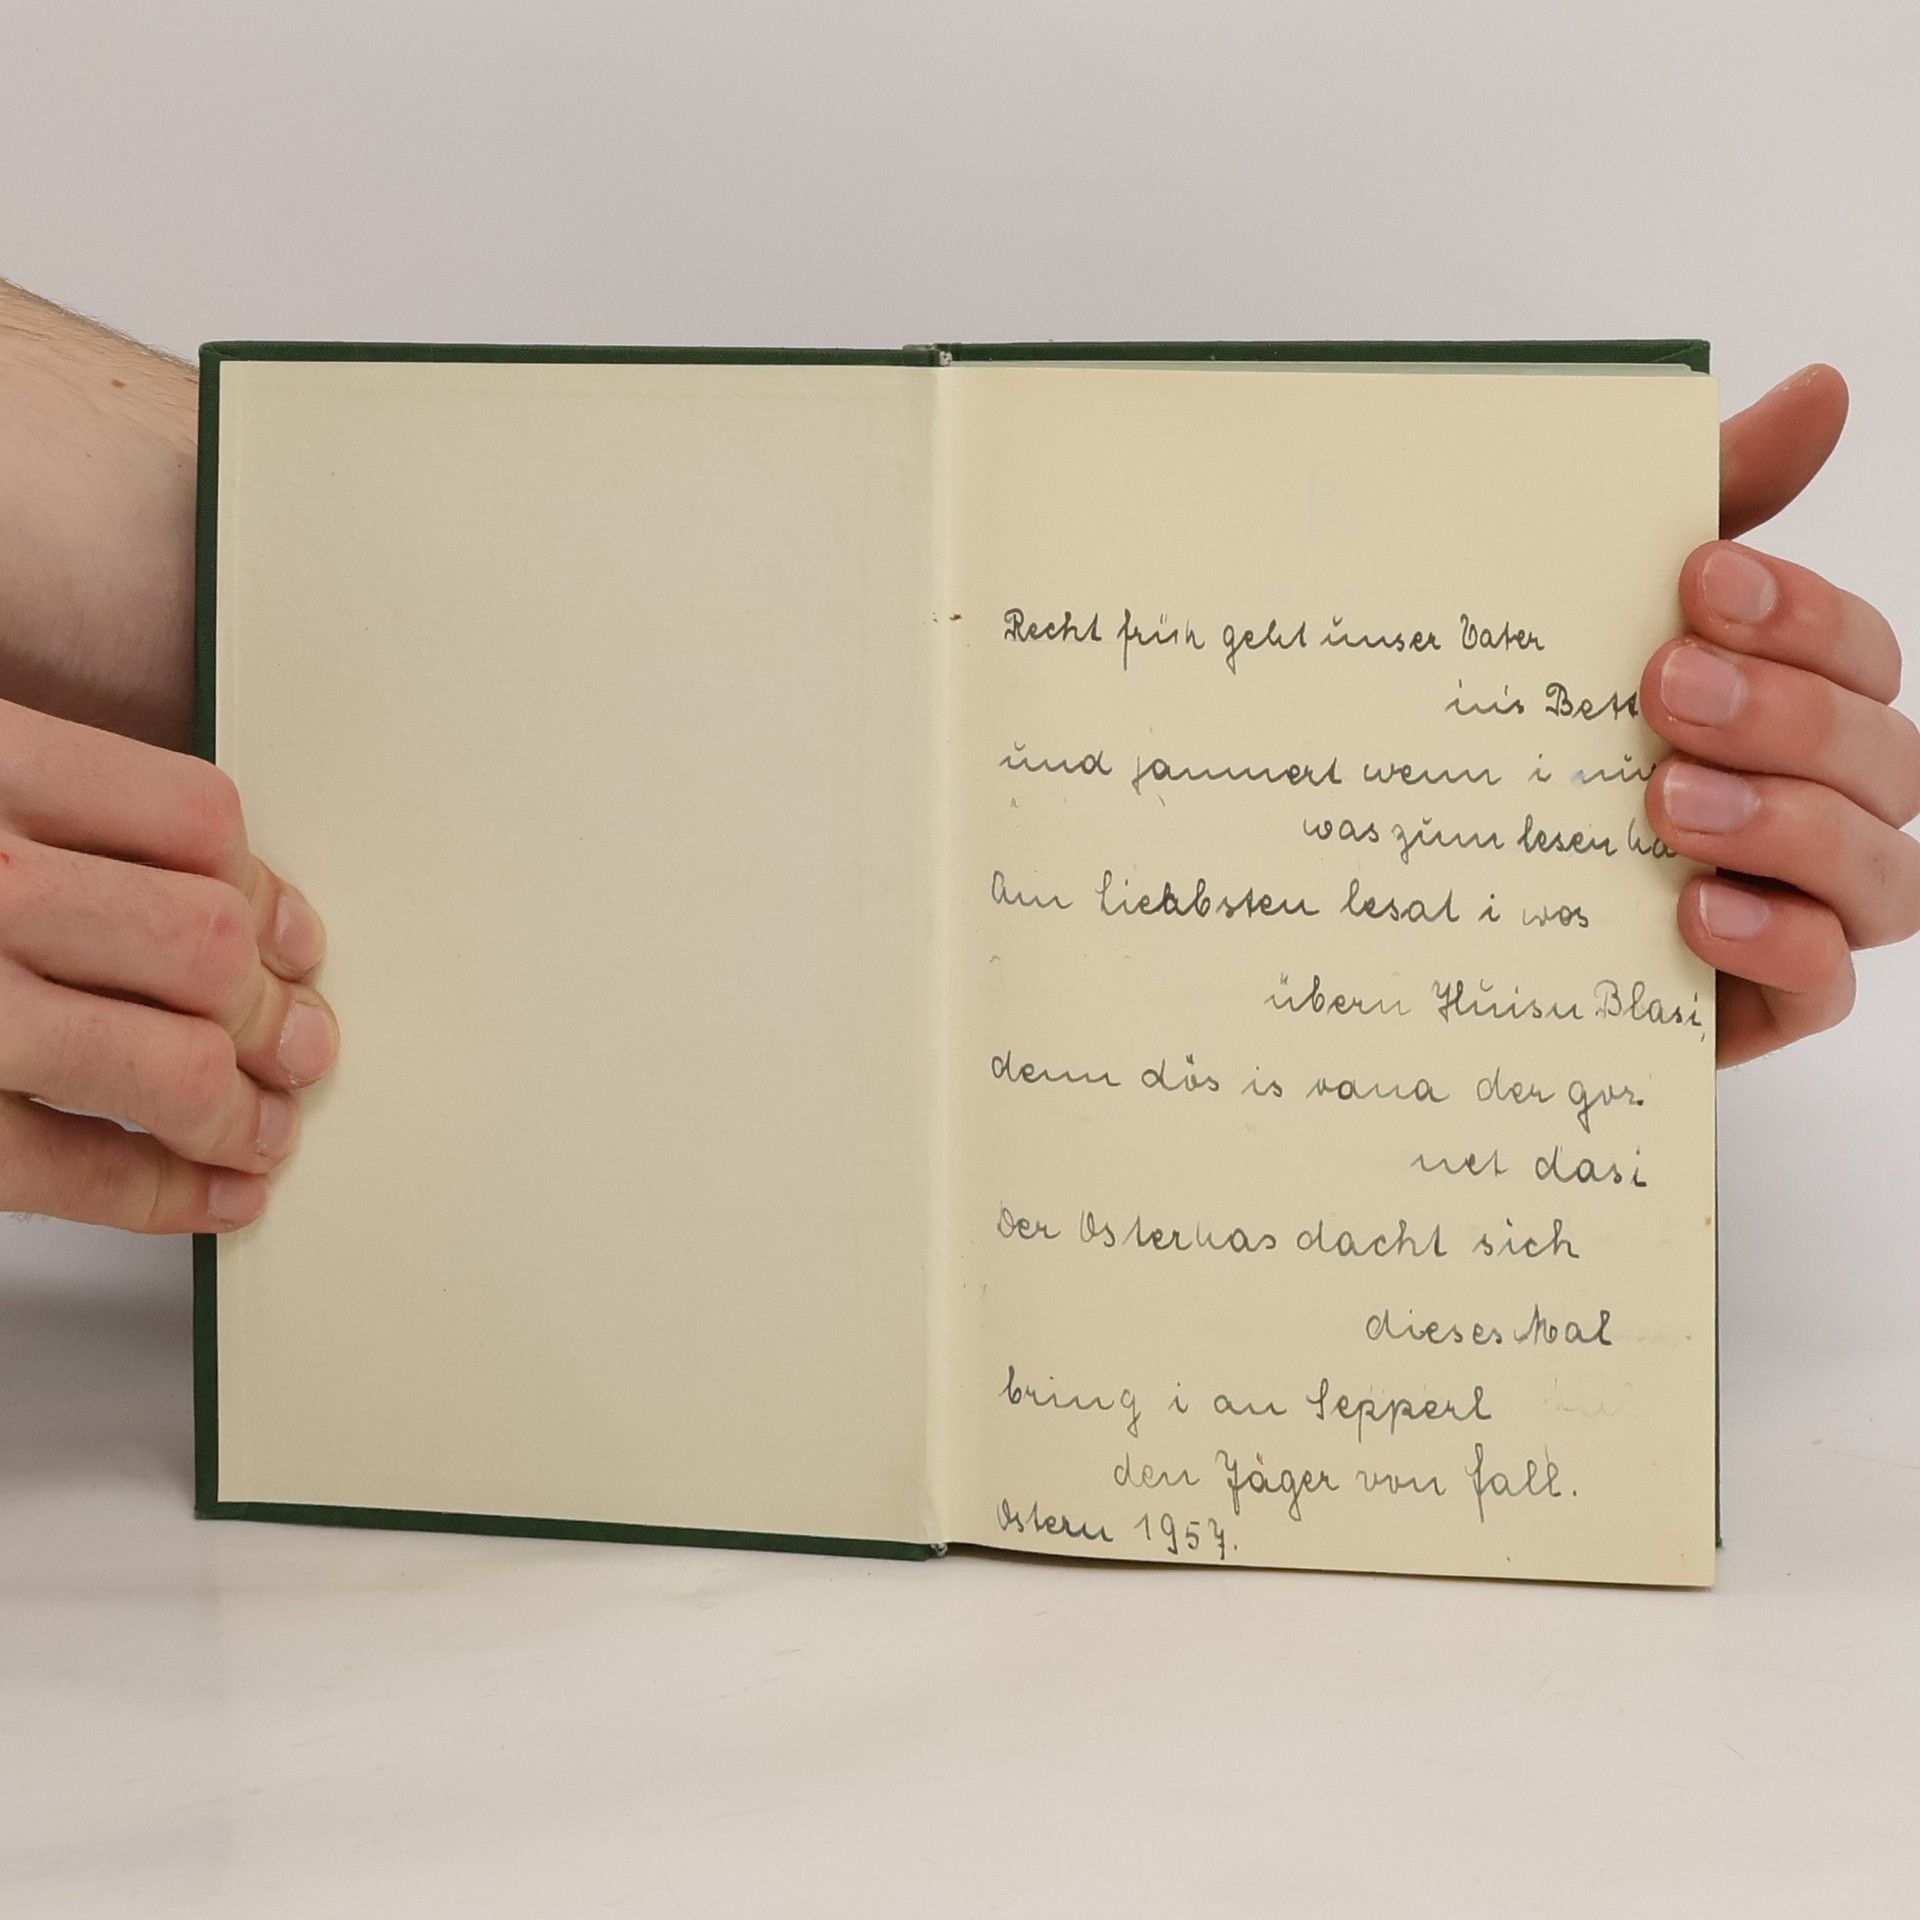 Recht früh geht unser Vater
ins Bett
und jammert wenn i nur
was zum lesen ha
Am Liebsten lesat i was
übern Huisn Blasi,
denn dös is oana der gor
net dasi
Der Osterhas dacht sich
dieses Mal
bring i an Sepperl
den Jäger von fall.
Ostern 1957.